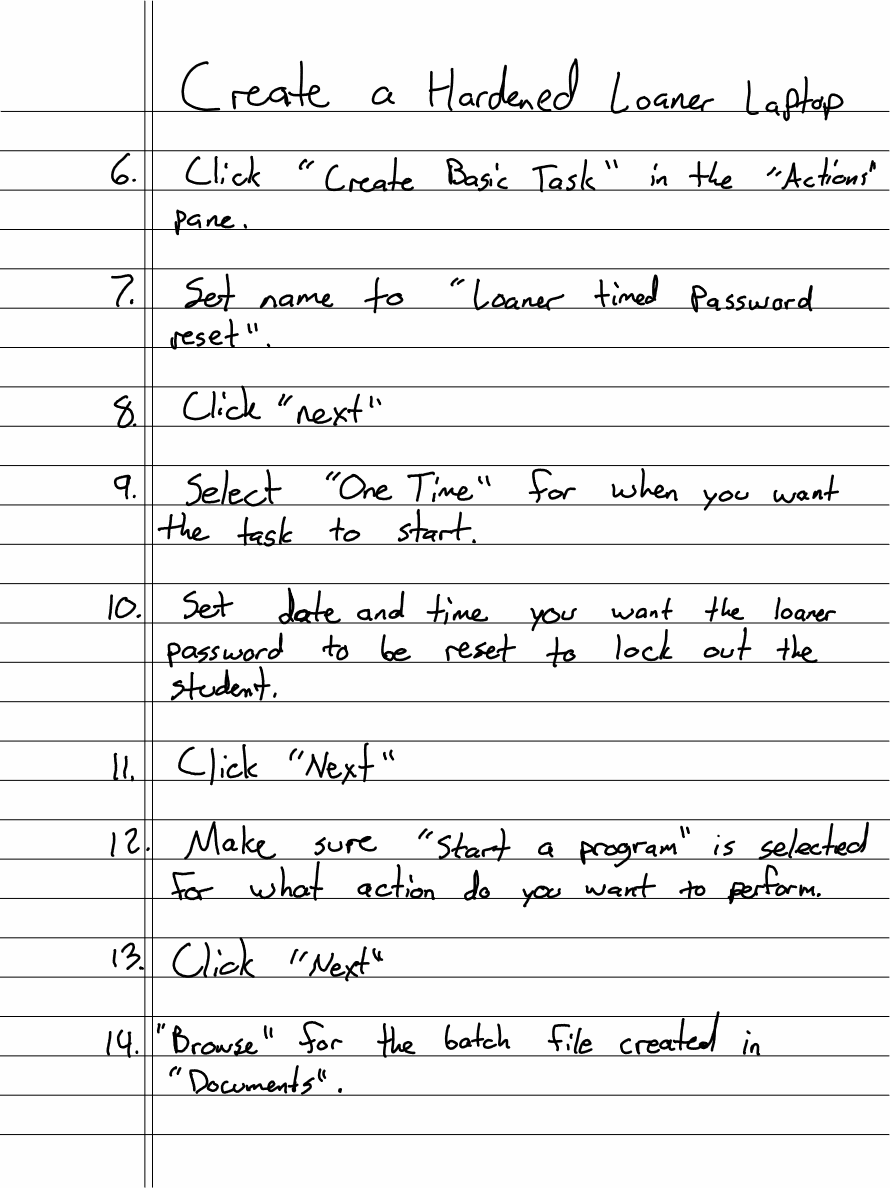 Create a Hardened Loaner Laptop
6. Click "Create Basic Task" in the "Actions"
pane.
7. Set name to "Loaner timed Password
reset".
8. Click "next"
9. Select "One Time" for when you want
the task to start.
10. Set date and time you want the loaner
password to be reset to lock out the
student.
11. Click "Next"
12. Make sure "Start a program" is selected
for what action do you want to perform.
13. Click "Next"
14. "Browse" for the batch file created in
"Documents".